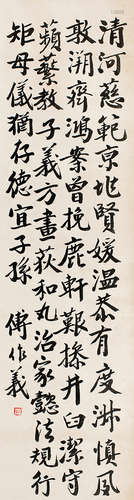 清河慈範京兆賢媛溫恭有度淋慎風
敦溯齊鴻案曾挽鹿軒艱操井臼潔守
蘋蘩教子義方畫荻和丸治家懿法規行
矩母儀猶存德宜子孫 傅作義